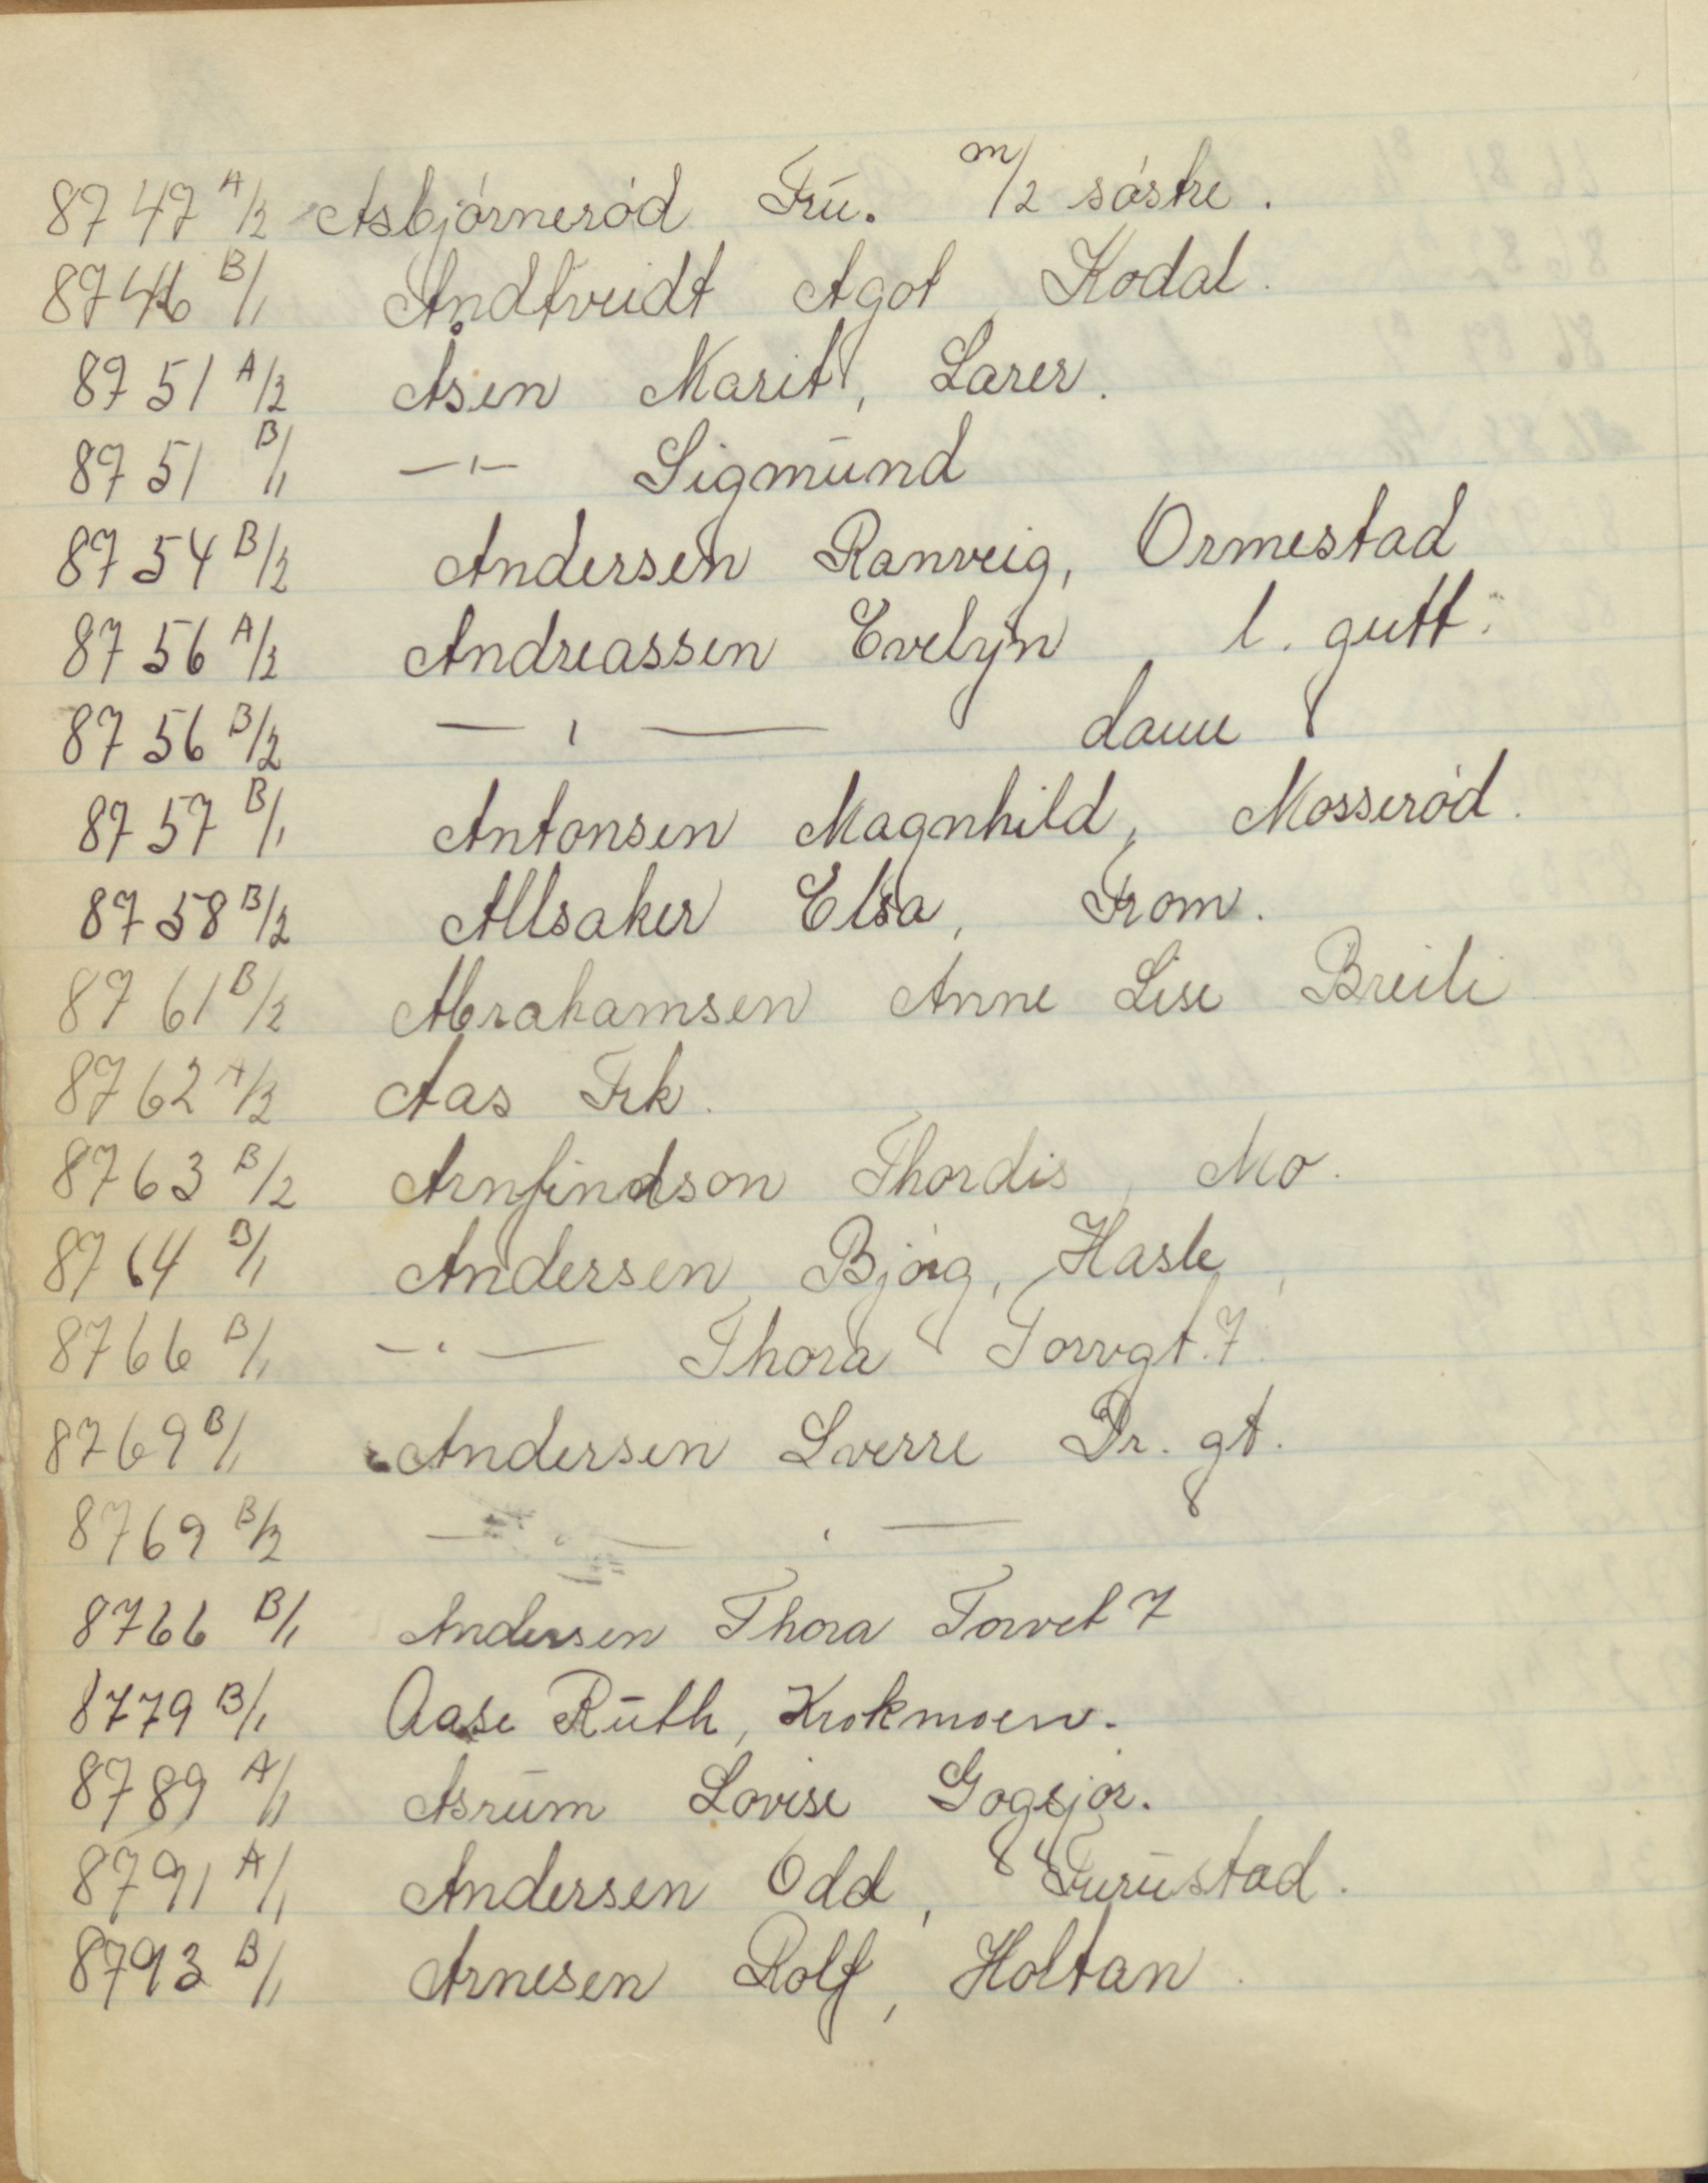 8747 A/2 Asbjórneród Frū. m/2 sóstre.
8746 B/1 Andtveidt Agot Kodal.
8751 A/2 Åsen Marit, Larer.
8751 B/1 —"— Sigmūnd
8754 B/2 Andersen Ranveig, Ormestad
8756 A/2 Andreassen Evelyn l. gutt.
8756 B/2 —"— dame
8757 B/1 Antonsen Magnhild, Mosseród.
8758 B/2 Allsaker Elsa, From.
8761 B/2 Abrahamsen Anne Lise Breili
8762 A/2 Aas Frk.
8763 B/2 Arnfindson Thordis, Mo.
8764 B/1 Andersen Bjórg, Hasle
8766 B/1 —"— Thora Torvgt. 7.
8769 B/1 Andersen Sverre Pr. gt.
8769 B/2 —"— "—
8766 B/1 Andersen Thora Torvet 7
8779 B/1 Aase Rūth, Krokmoen.
8789 A/1 Asrūm Lovise Gogsjór.
8791 A/1 Andersen Odd, Furūstad.
8793 B/1 Arnesen Rolf, Holtan.